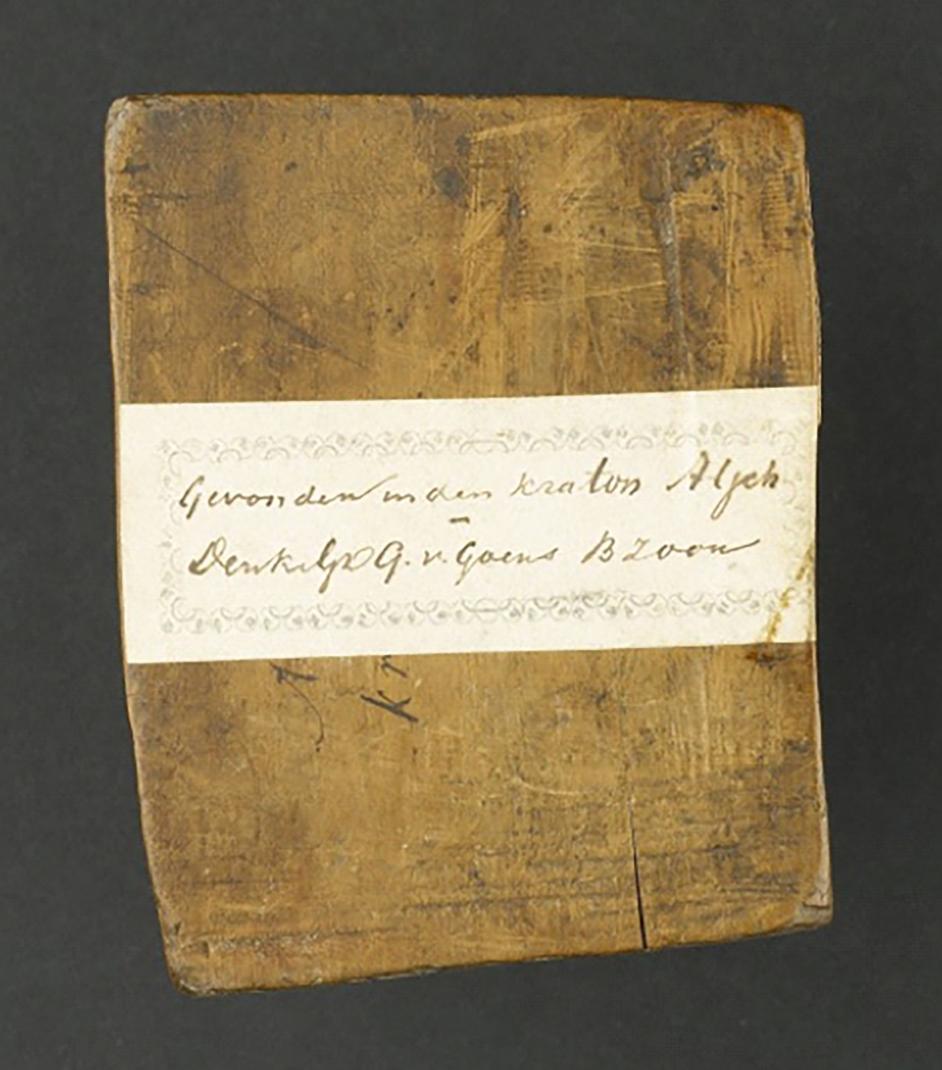 Gevonden in den kraton Atjeh
Denkelyk G. v. Goens BZoon
k r